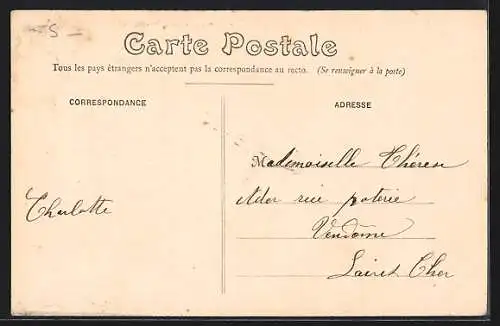 5 -
Carte Postale
Tous les pays étrangers n'acceptent pas la correspondance au recto. (Se renseigner à la poste)
CORRESPONDANCE
ADRESSE
Mademoiselle Thérèse
rue poterie
Charlotte
Vendôme
Loir et Cher